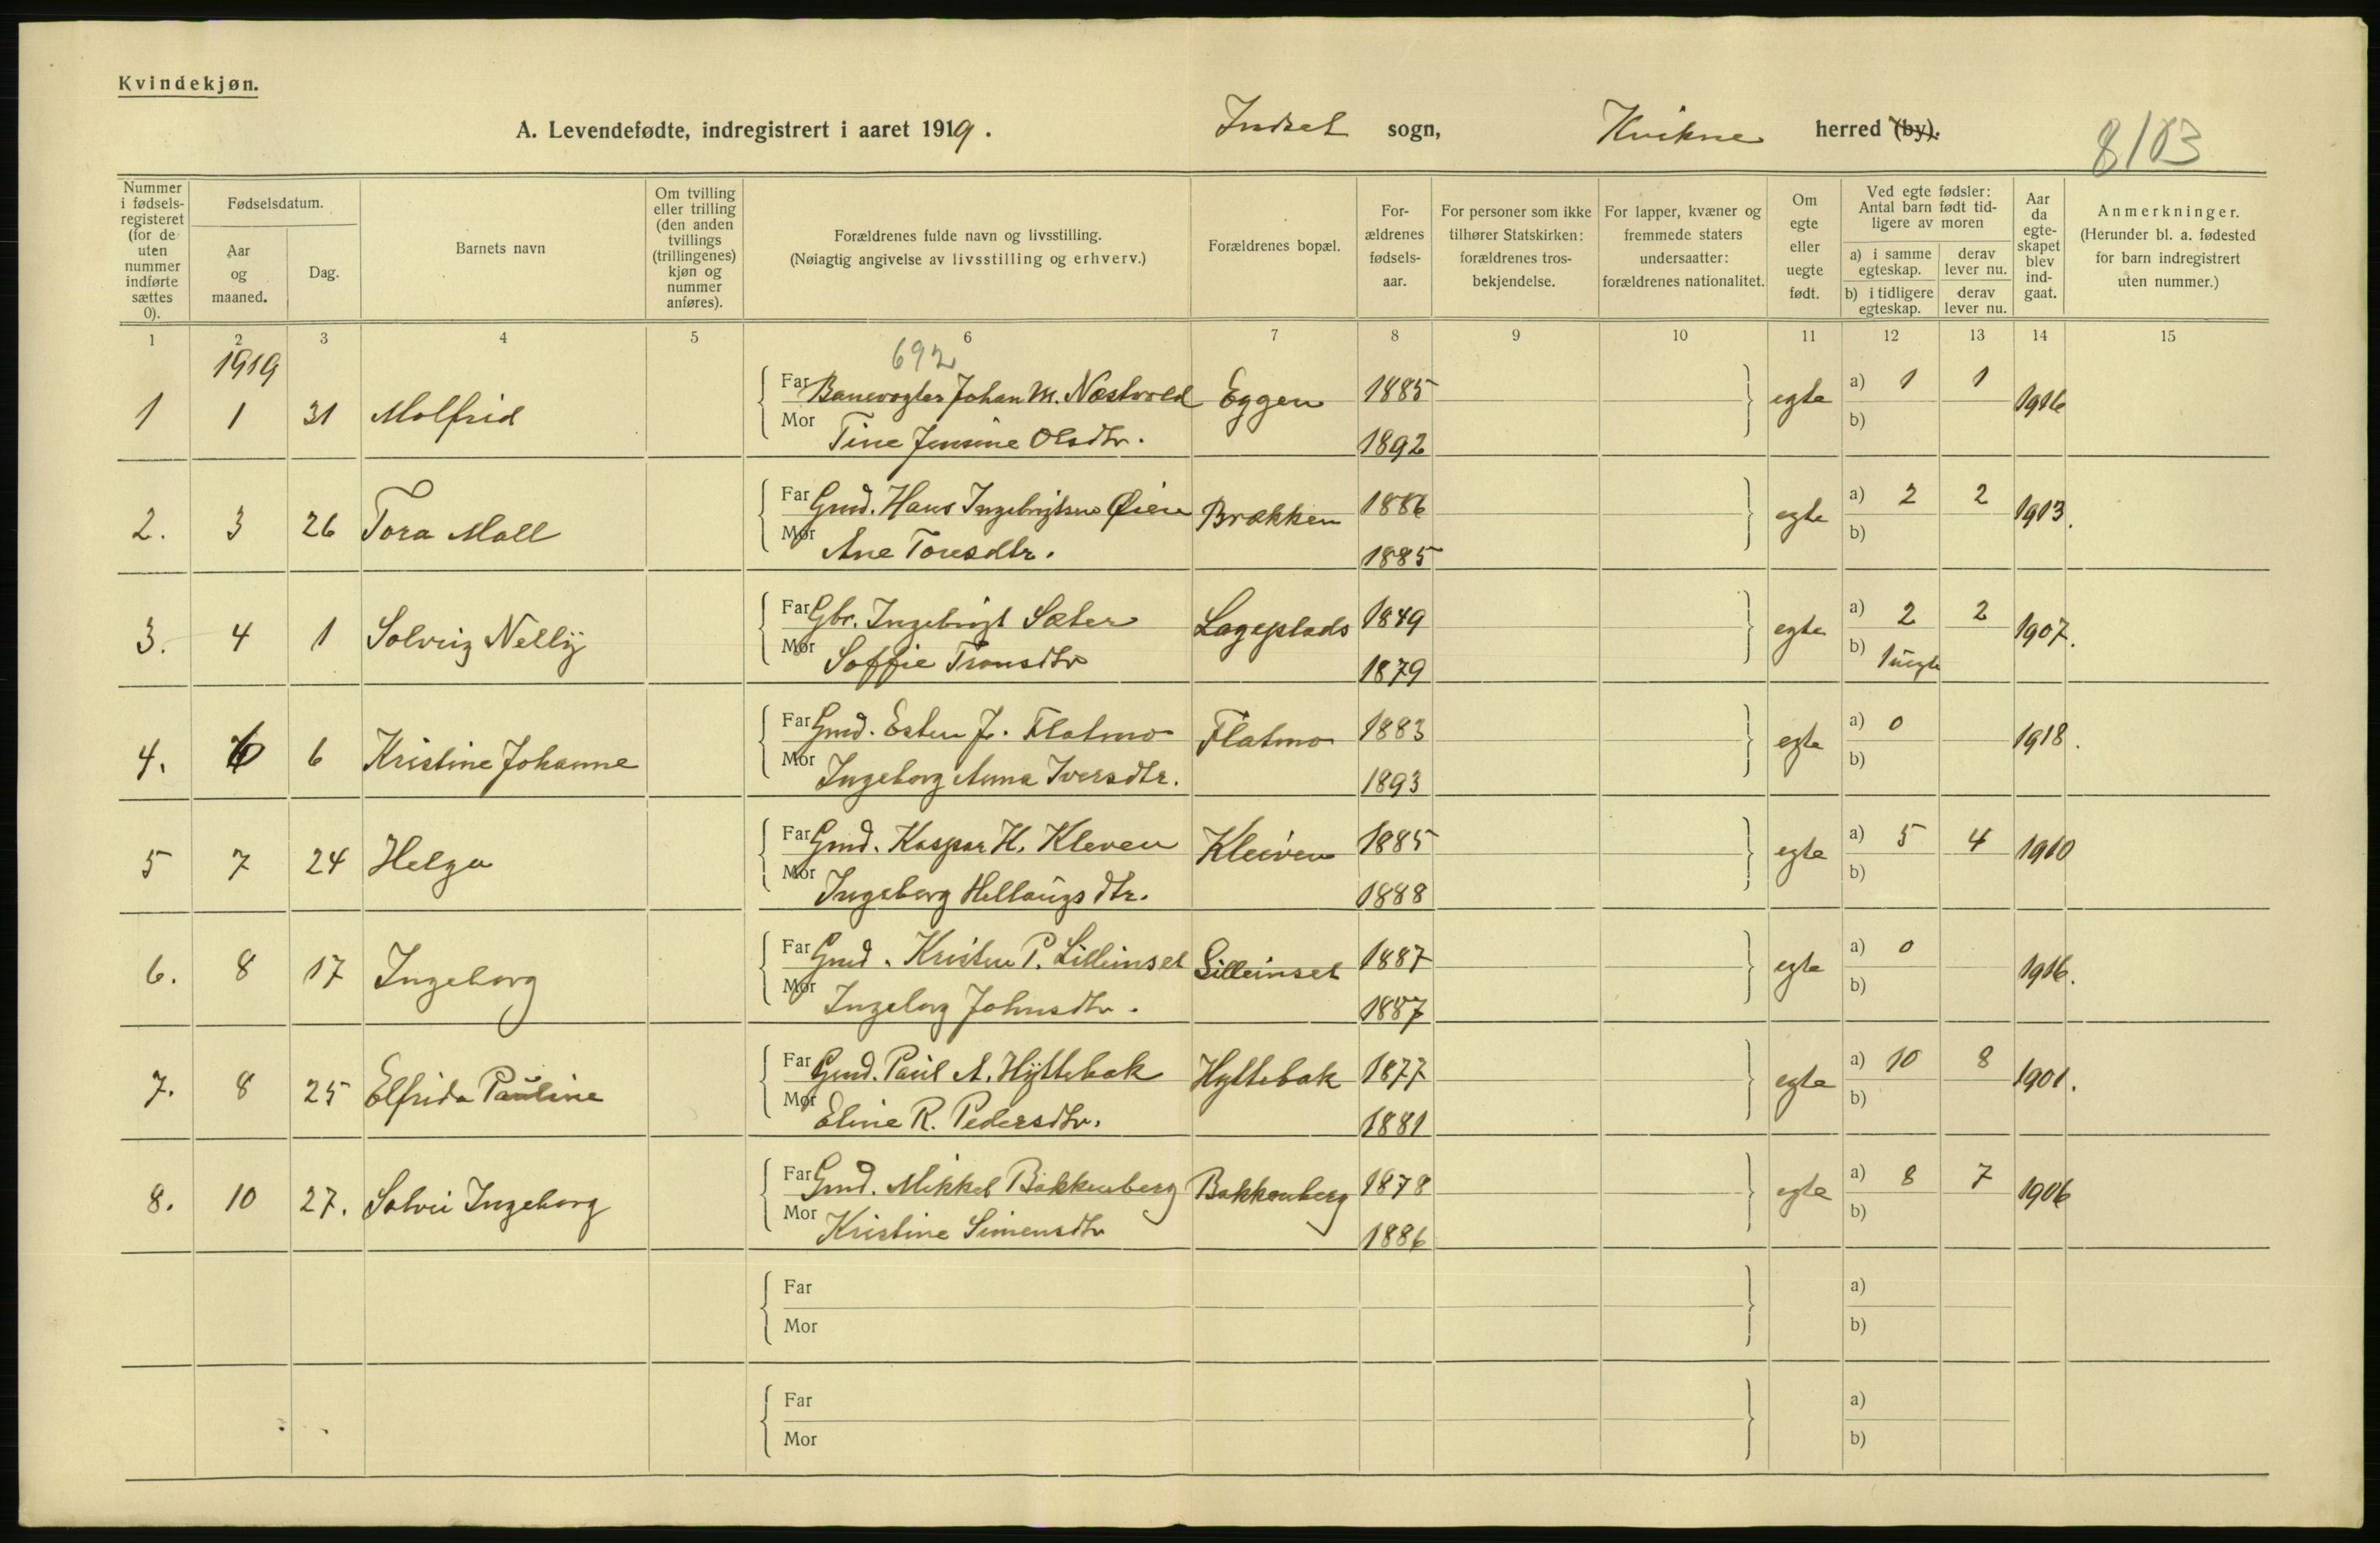 Kvindekjøn.
A. Levendefødte, indregistrert i aaret 1919. Indset sogn, Kvikne herred (by).
8/103
Nummer i fødsels-registeret (for de uten nummer indførte sættes 0).
Fødselsdatum.
Aar og maaned.
Dag.
Barnets navn
Om tvilling eller trilling (den anden tvillings (trillingenes) kjøn og nummer anføres).
Forældrenes fulde navn og livsstilling.
(Nøiagtig angivelse av livsstilling og erhverv.)
Forældrenes bopæl.
For-ældrenes fødsels-aar.
For personer som ikke tilhører Statskirken: forældrenes tros-bekjendelse.
For lapper, kvæner og fremmede staters undersaatter: forældrenes nationalitet.
Om egte eller uegte født.
Ved egte fødsler: Antal barn født tid-ligere av moren
a) i samme egteskap.
derav lever nu.
b) i tidligere egteskap.
derav lever nu.
Aar da egte-skapet blev ind-gaat.
Anmerkninger.
(Herunder bl. a. fødested for barn indregistrert uten nummer.)
1 2 3 4 5 6 7 8 9 10 11 12 13 14 15
1919
692
1 1 31 Malfrid Far Banevogter Johan M. Næstvold Eggen 1885 egte a) 1 1 1916
Mor Tine Jensine Olsdtr. 1892 b)
2. 3 26 Tora Mall Far Gmd. Hans Ingebrigtsen Øien Brækken 1886 egte a) 2 2 1913.
Mor Ane Toresdtr. 1885 b)
3. 4 1 Solveig Nelly Far Gbr. Ingebrigt Sæter Lageplads 1849 egte a) 2 2 1907.
Mor Soffie Tronsdtr 1879 b) 1 uegte
4. 6 6 Kristine Johanne Far Gmd. Esten J. Flatmo Flatmo 1883 egte a) 0 1918.
Mor Ingeborg Anna Iversdtr. 1893 b)
5 7 24 Helga Far Gmd. Kaspar H. Kleven Kleiven 1885 egte a) 5 4 1910
Mor Ingeborg Hellaugsdtr. 1888 b)
6. 8 17 Ingeborg Far Gmd. Kristen P. Lilleinset Lilleinset 1887 egte a) 0 1916.
Mor Ingeborg Johnsdtr. 1887 b)
7. 8 25 Elfrida Pauline Far Gmd. Paul A. Hyttebak Hyttebak 1877 egte a) 10 8 1901.
Mor Eline R. Pedersdtr. 1881 b)
8. 10 27. Solvei Ingeborg Far Gmd. Mikkel Bakkenberg Bakkenberg 1878 egte a) 8 7 1906
Mor Kristine Simensdtr 1886 b)
Far a)
Mor b)
Far a)
Mor b)